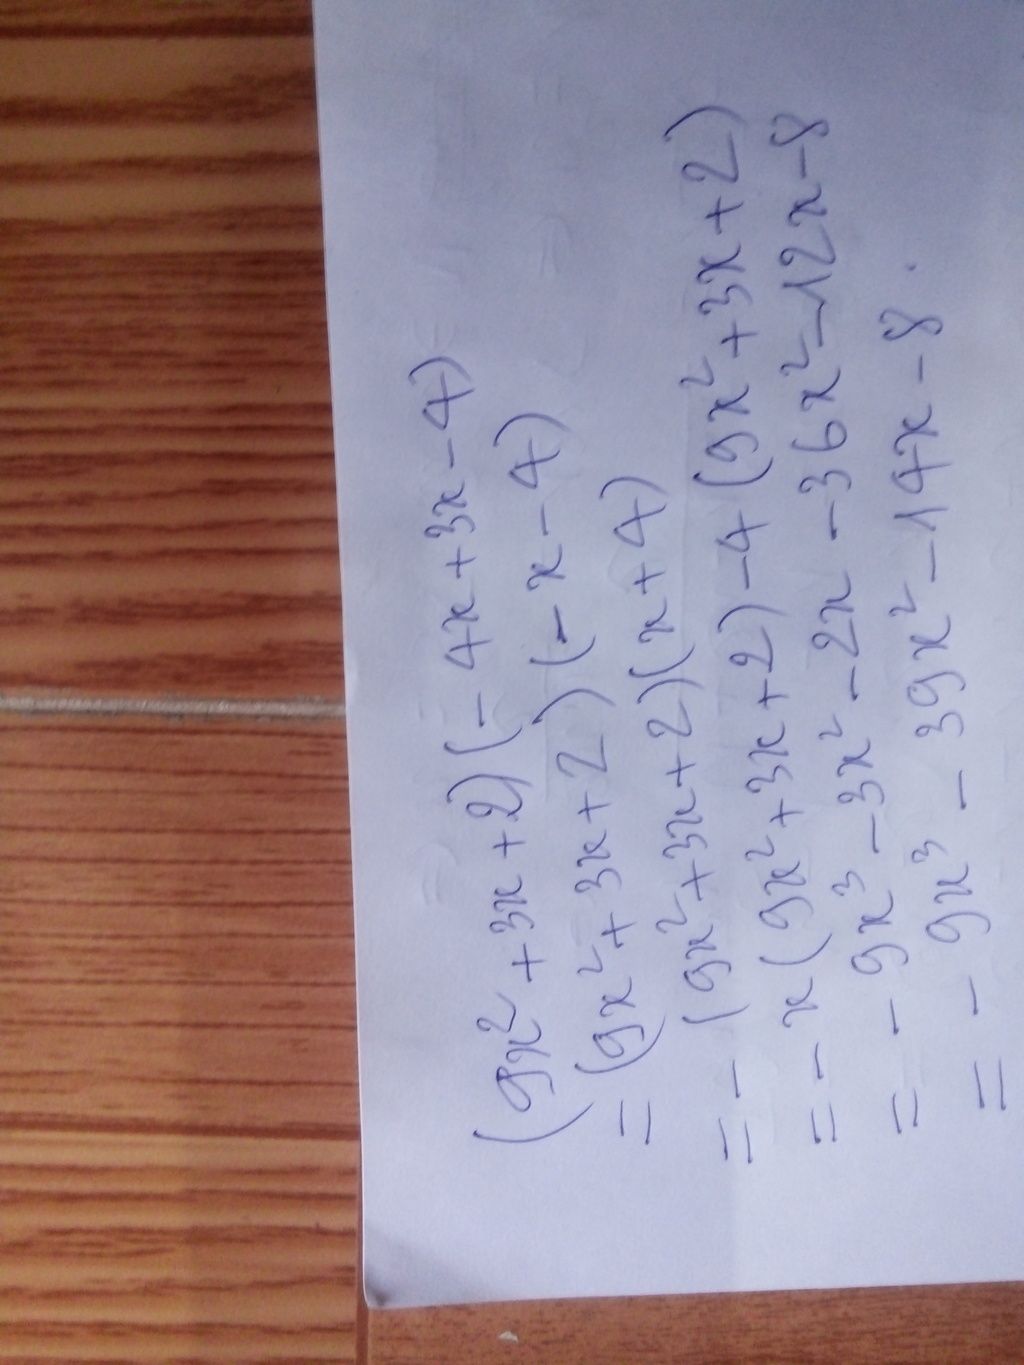 (9x² + 3x + 2)(- 4x + 3x - 4)
= (9x² + 3x + 2)(- x - 4)
= - (9x² + 3x + 2)(x + 4)
= - x (9x² + 3x + 2) - 4 (9x² + 3x + 2)
= - 9x³ - 3x² - 2x - 36x² - 12x - 8
= - 9x³ - 39x² - 14x - 8.